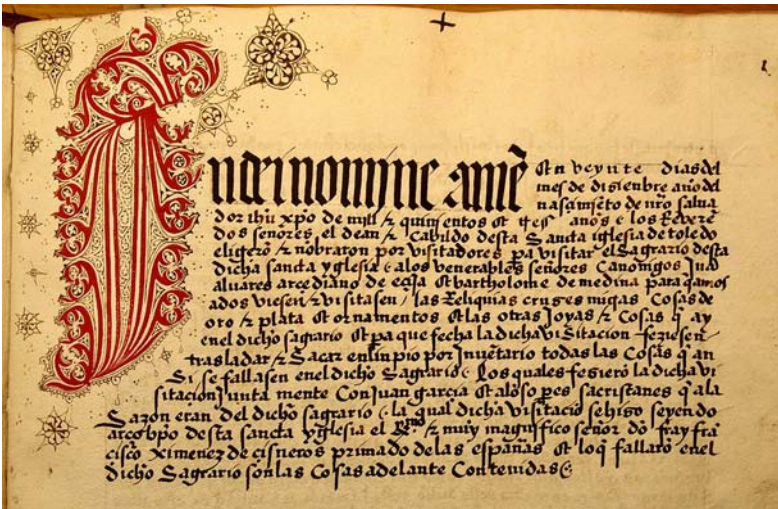 In dei nomine amē En veynte dias del
mes de disienbre año del
nasçimēto de nr̄o salua
dor ihū xp̄o de mill & quinientos & tres años ε los Reuerē
dos señores, el dean & Cabildo desta Sancta iglesia de toledo
eligerō & nōbraron por visitadores pa visitar el Sagrario desta
dicha sancta yglesia ε alos venerables señores Canonigos Juā
aluares arçediano de eçija & bartholome de medina para q̄ amos
ados viesen & visitasen las Reliquias cruzes mitras Cosas de
oro & plata & ornamentos & las otras Joyas & Cosas q̄ ay
enel dicħo sagrario & pa que fecha la dicha visitacion feziesen
trasladar & Sacar enlinpio por Inuētario todas las Cosas q̄ an
Si se fallasen enel dicħo Sagrario ε Los quales fezierō la dicha vi
sitacion Junta mente Con Juan garcia & alōso peres sacristanes q̄ ala
Sazon eran del dicħo sagrario ε la qual dicha visitaciō se hizo seyendo
arçobp̄o desta sancta yglesia el Rmo & muy magnifico señor dō fray frā
cisco Ximenez de cisneros primado de las españas & lo q̄ fallarō enel
dicħo Sagrario son las Cosas adelante Contenidas ε